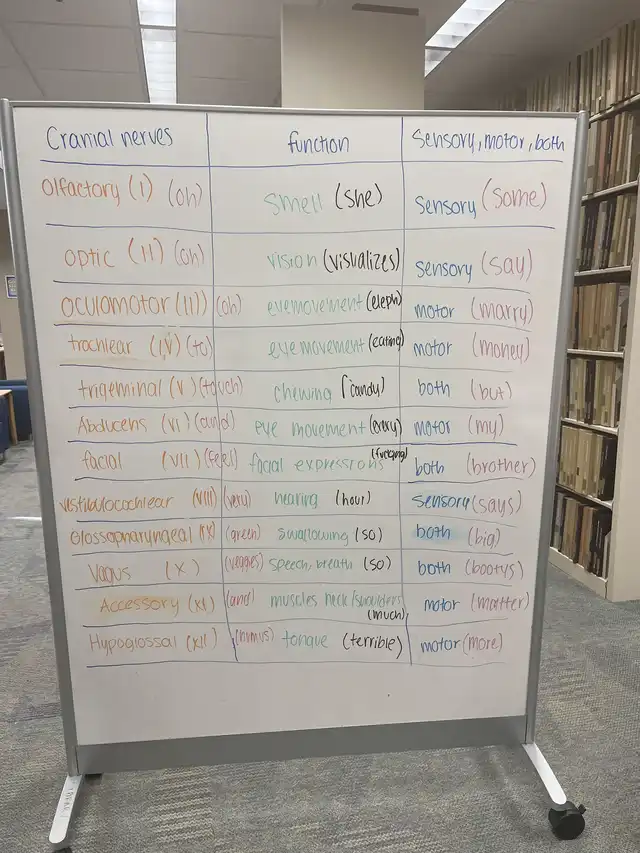 Cranial nerves function Sensory, motor, both
Olfactory (I) (oh) smell (she) sensory (some)
optic (II) (oh) vision (visualizes) sensory (say)
oculomotor (III) (oh) eyemovement (eleph) motor (marry)
trochlear (IV) (to) eye movement (eating) motor (money)
trigeminal (V) (touch) chewing (candy) both (but)
Abducens (VI) (and) eye movement (every) motor (my)
facial (VII) (feel) facial expressions both (brother)
vestibulocochlear (VIII) (very) hearing (hour) sensory (says)
Glossopharyngeal (IX) (green) swallowing (so) both (big)
Vagus (X) (veggies) speech, breath (so) both (bootys)
Accessory (XI) (and) muscles neck/shoulders (much) motor (matter)
Hypoglossal (XII) tongue (terrible) motor (more)